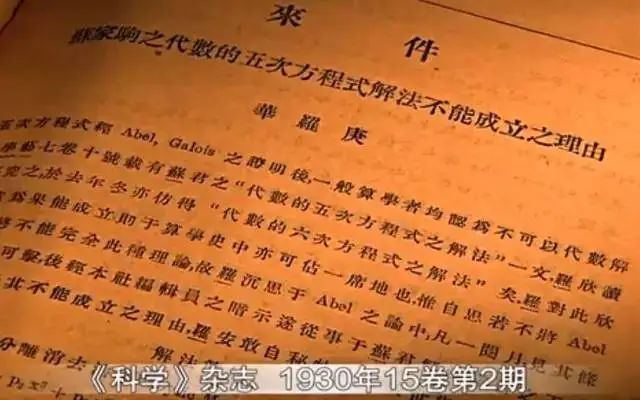 來件
蘇家駒之代數的五次方程式解法不能成立之理由
華羅庚
五次方程式經 Abel, Galois 之證明後,一般算學者均認爲不可以代數解
學藝七卷十號載有蘇君之"代數的五次方程式之解法"一文,羅欣讀
之,於去年冬亦仿得"代數的六次方程式之解法"矣,羅對此欣
爲果能成立則于算學史中亦可佔一席地也,惟自思若不將 Abel
不能完全此種理論,故羅沉思于 Abel 之論中,凡一閱月,見其條
可擊,後經本社編輯員之暗示,遂從事于蘇君解
其不能成立之理由,羅安敢自秘
分離消去
解法
《科学》杂志 1930年15卷第2期